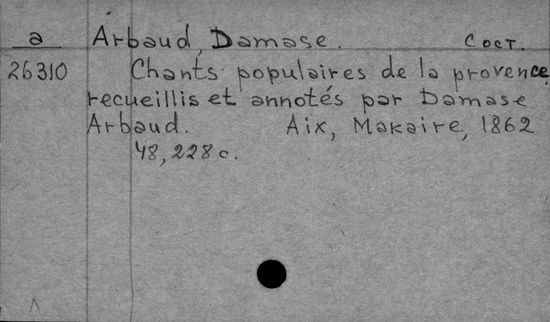 a Arbaud, Damase. Сост.
26310 Chants populaires de la provence
recueillis et annotés par Damase
Arbaud. Aix, Makaire, 1862
48, 228 с.